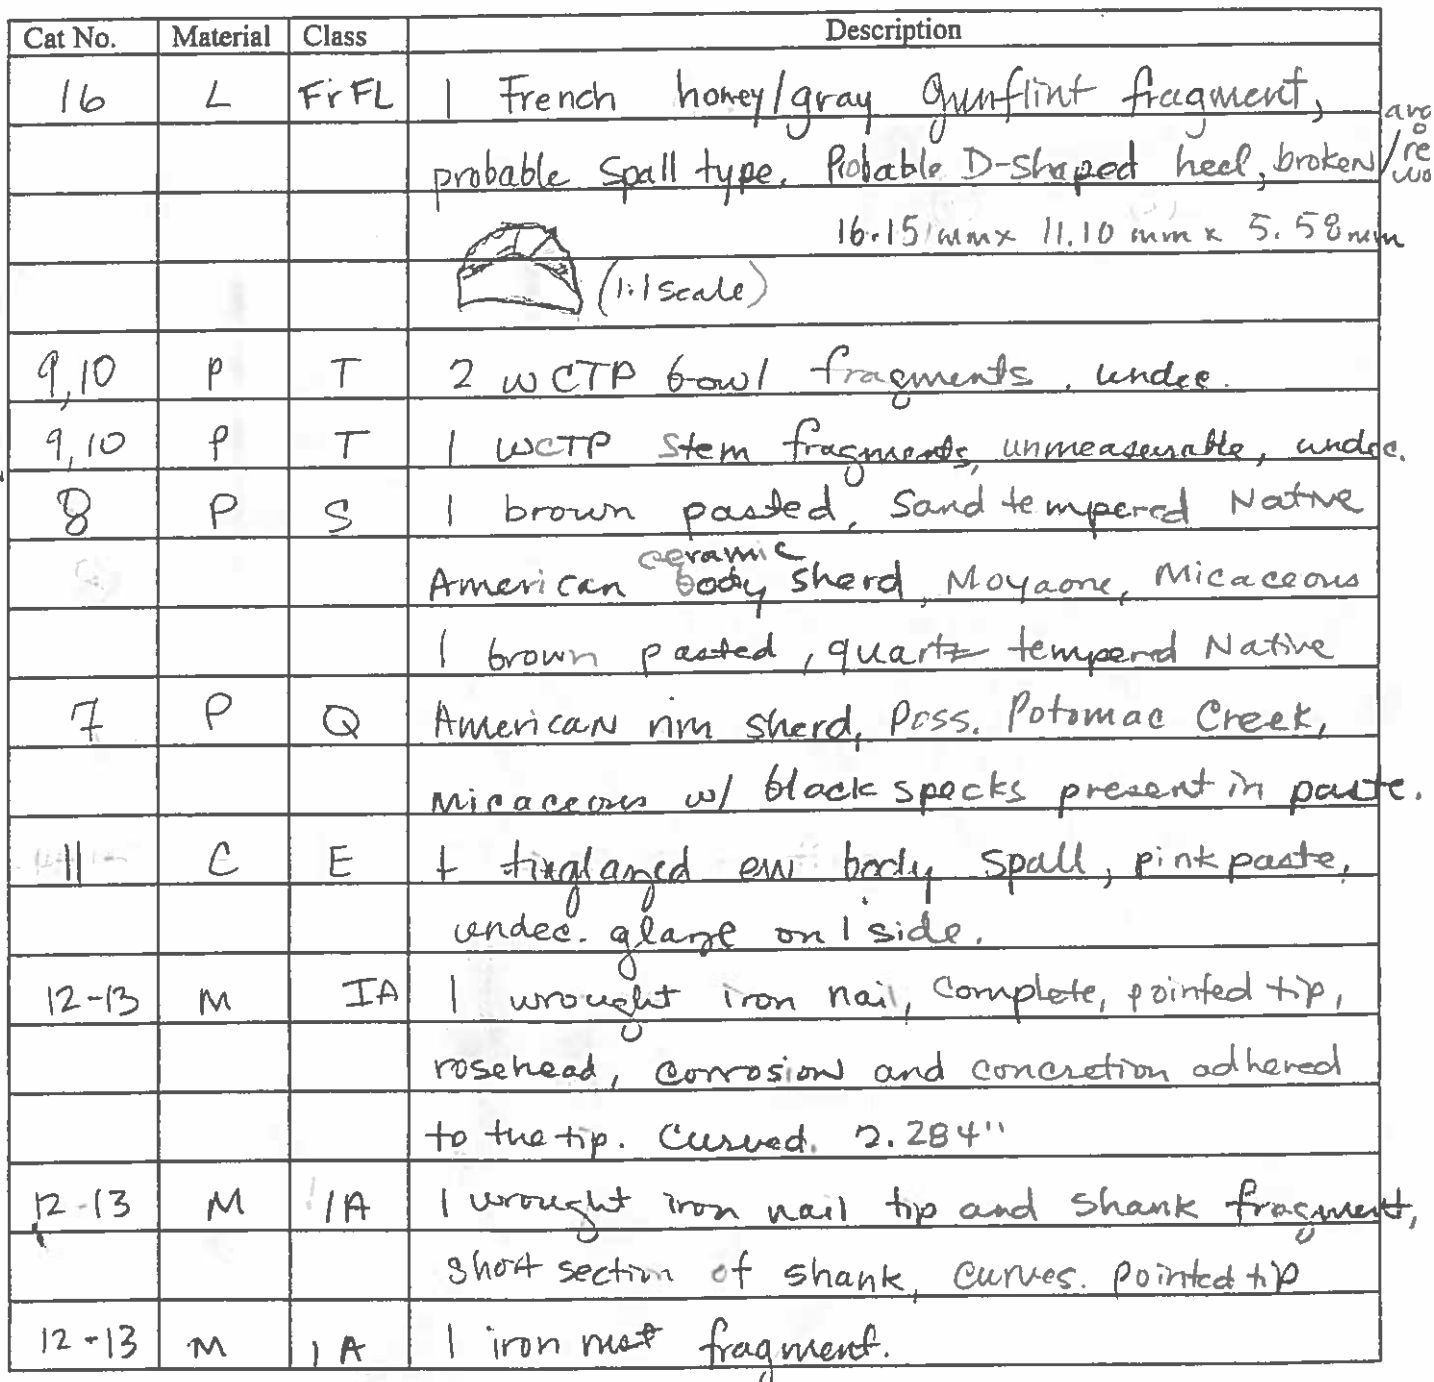 Cat No. Material Class Description
16 L FrFL 1 French honey/gray gunflint fragment,
probable spall type. Probable D-shaped heel, broken/
16.15 mm x 11.10 mm x 5.58 mm
(1:1 scale)
9,10 P T 2 WCTP bowl fragments, undec.
9,10 P T 1 WCTP stem fragments, unmeasurable, undec.
8 P S 1 brown pasted, sand tempered Native
American ceramic body sherd, Moyaone, Micaceous
1 brown pasted, quartz tempered Native
7 P Q American rim sherd, Poss. Potomac Creek,
Micaceous w/ black specks present in paste.
11 C E 1 tinglazed ew body spall, pink paste,
undec. glaze on 1 side.
12-13 M IA 1 wrought iron nail, complete, pointed tip,
rosehead, corrosion and concretion adhered
to the tip. Curved. 2.284"
12-13 M IA 1 wrought iron nail tip and shank fragment,
short section of shank, curves. pointed tip
12-13 M IA 1 iron fragment.